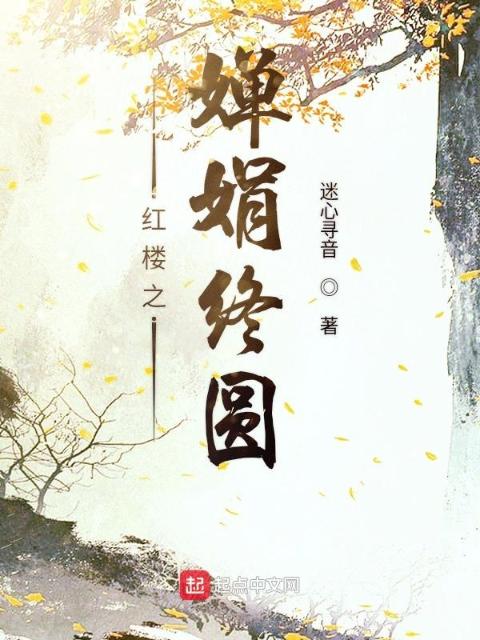 红楼之
婵娟终圆
迷心寻音 ◎ 著
起 起点中文网